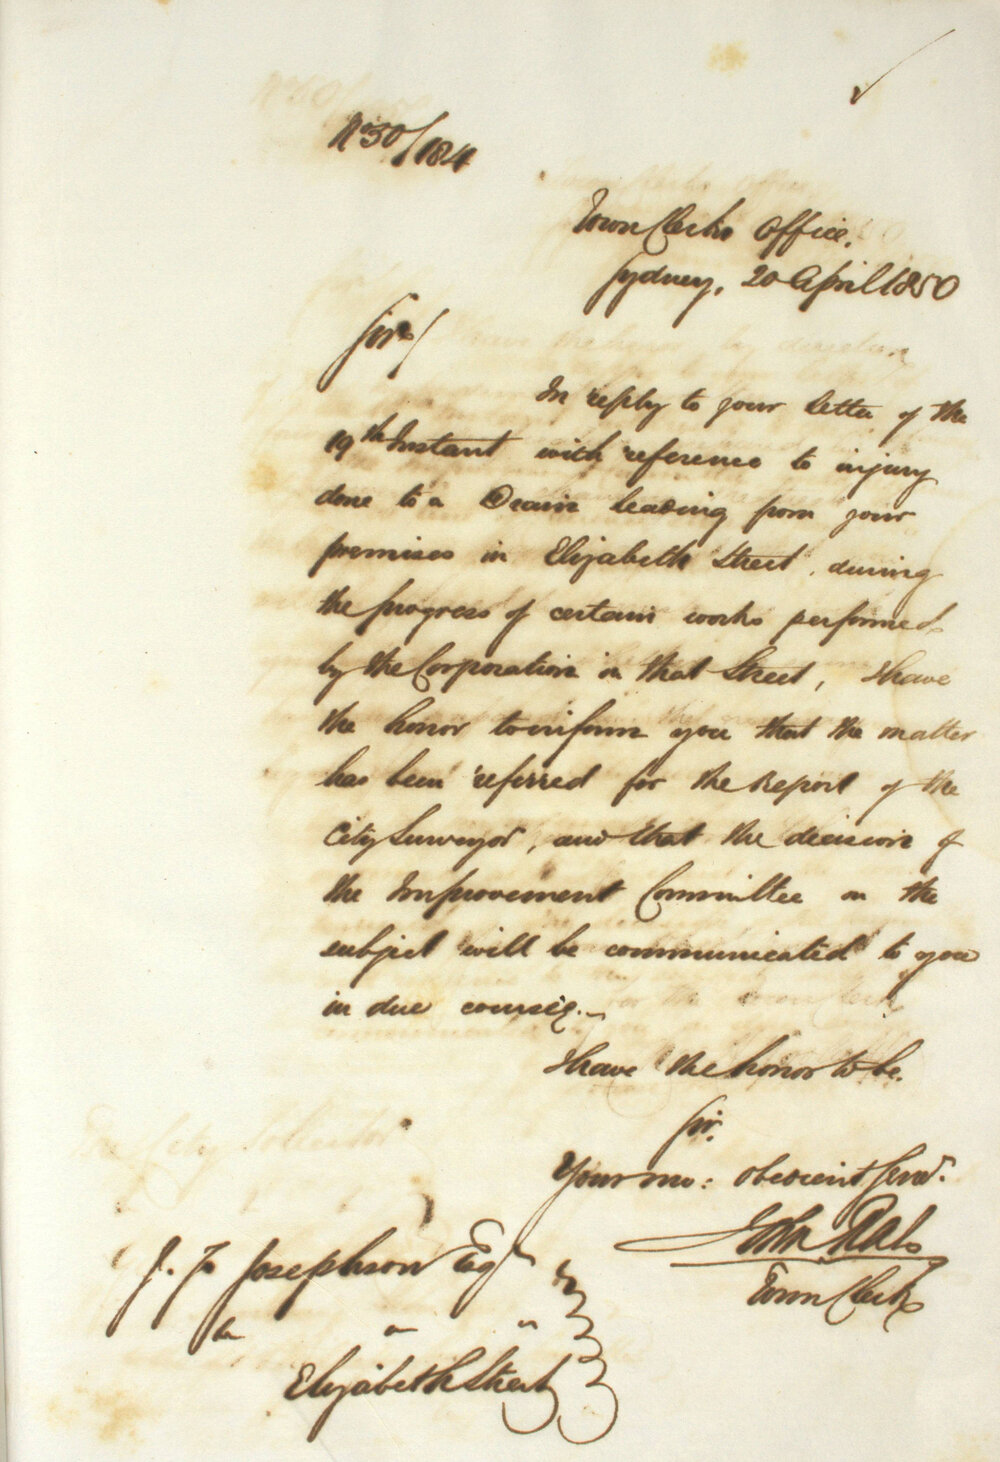 No 50/184
Town Clerks Office.
Sydney, 20 April 1850
Sir/
In reply to your letter of the
19th Instant with reference to injury
done to a Drain leading from your
premises in Elizabeth Street, during
the progress of certain works performed
by the Corporation in that Street, I have
the honor to inform you that the matter
has been referred for the Report of the
City Surveyor, and that the decision of
the Improvement Committee on the
subject will be communicated to you
in due course.
I have the honor to be.
Sir.
Your mo: obedient Servt.
John Rae
Town Clerk
J. F. Josephson Esqr
Elizabeth Street